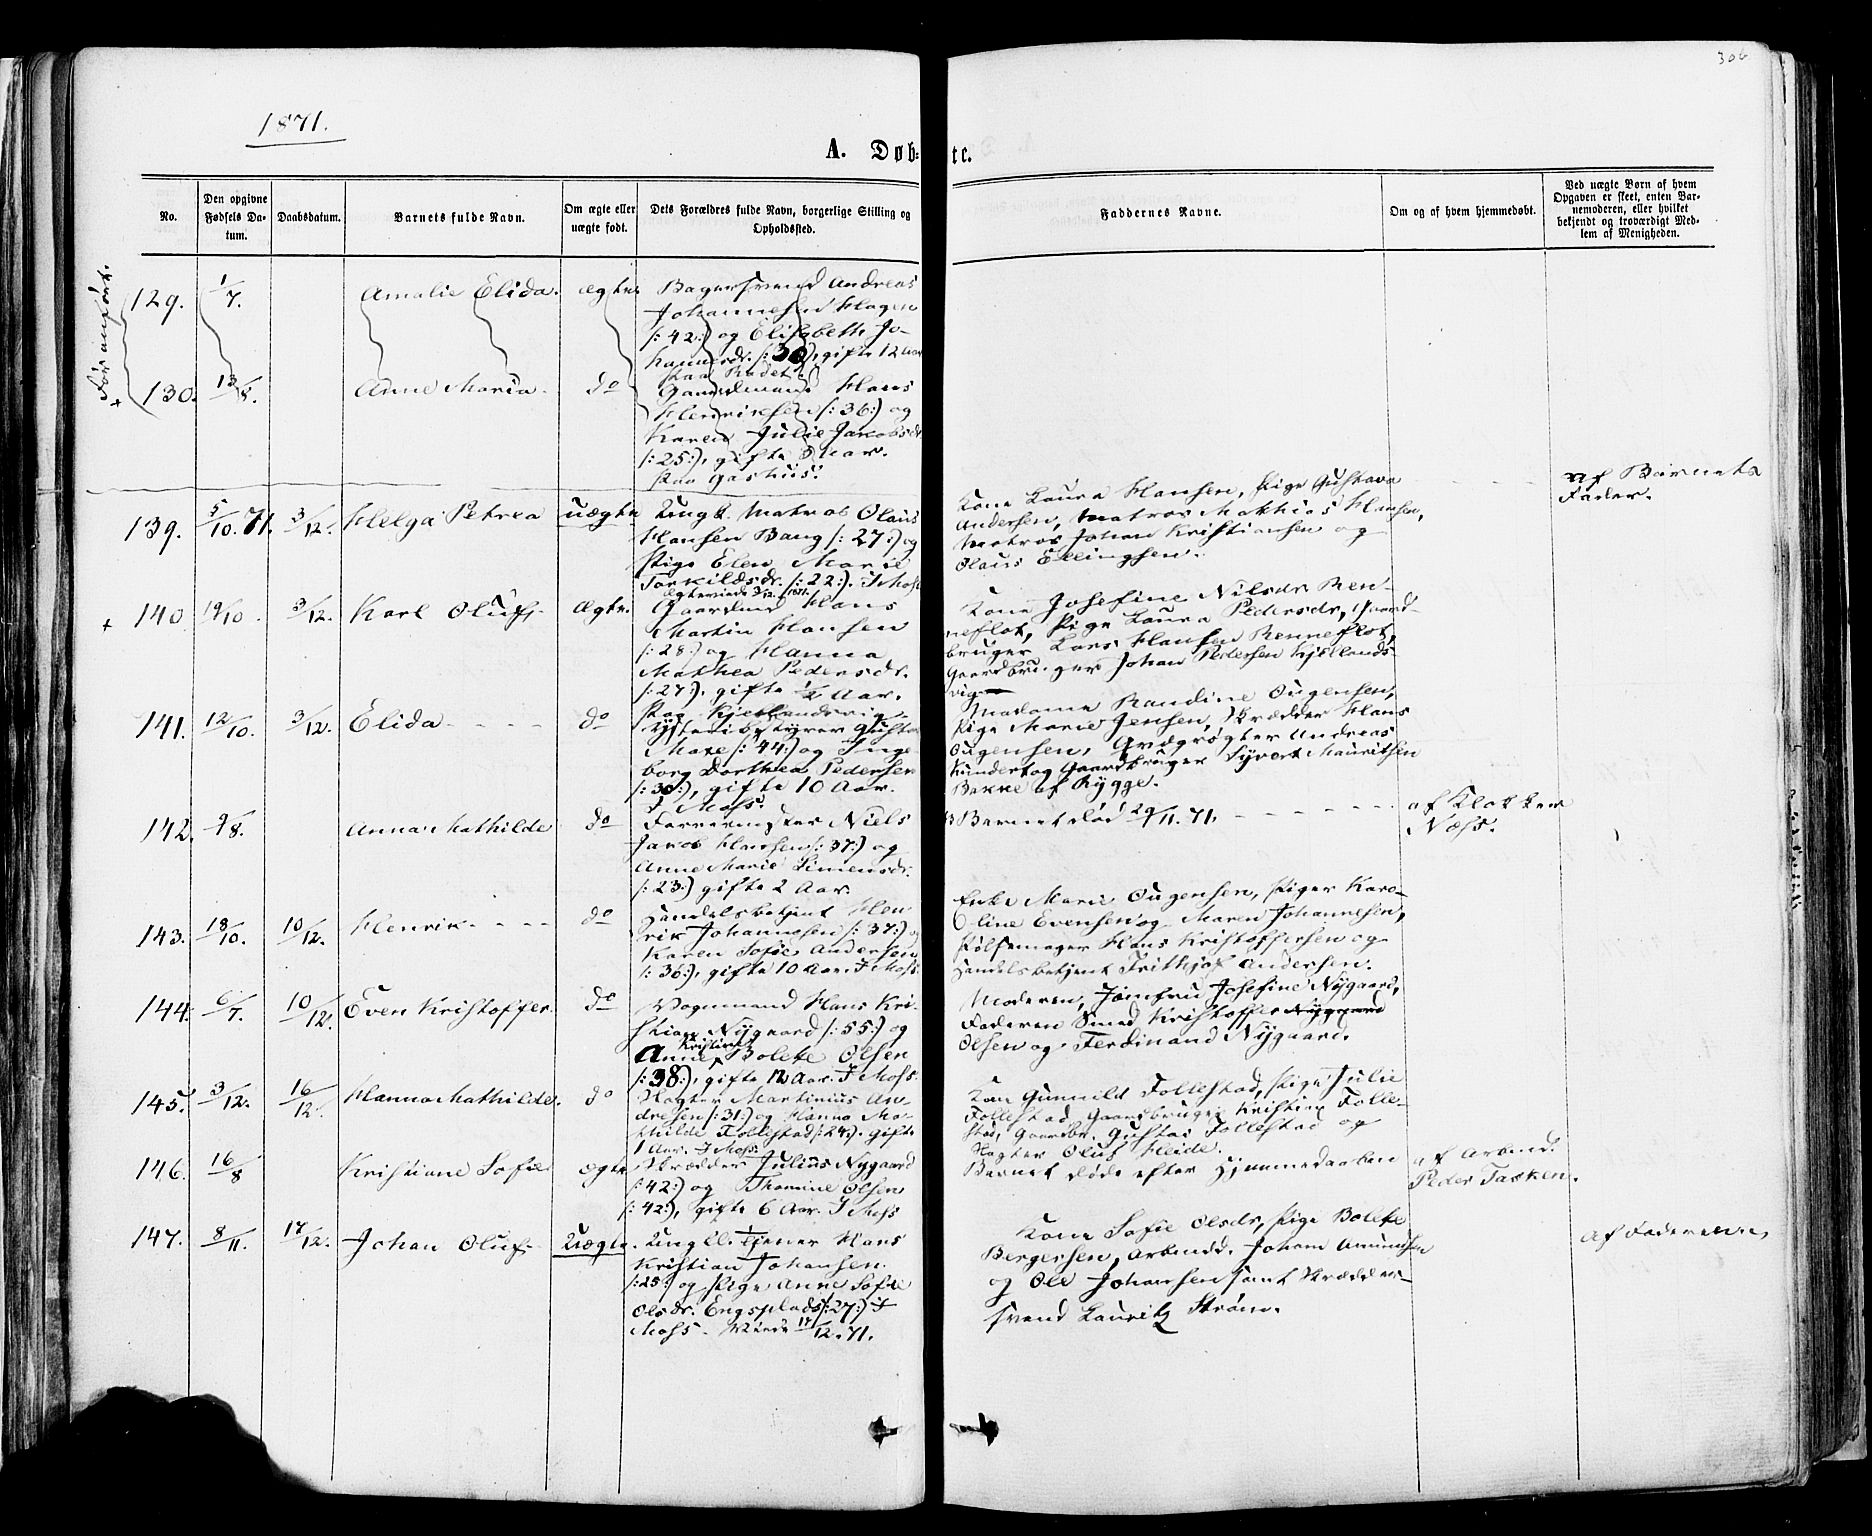 306
1871.
A. Døb-
te.
No.
Den opgivne Fødsels Da-tum.
Daabsdatum.
Barnets fulde Navn.
Om ægte eller uægte født.
Dets Forældres fulde Navn, borgerlige Stilling og Opholdssted.
Faddernes Navne.
Om og af hvem hjemmedøbt.
Ved uægte Børn af hvem Opgaven er skeet, enten Bar-nemoderen, eller hvilket bekjendt og troværdigt Med-lem af Menigheden.
Før anført.
129. 1/7. Amalie Elida. ægte. Bagersvend Andreas
Johannesen Hagen
/:42:/ og Elisabeth Jo-
hannesdr. /:30:/, gifte 12 Aar
paa Radet.
130. 13/8. Anne Maria. do Gaardmand Hans
Henriksen /:36:/ og
Karen Julie Jakobsdr.
/:25:/, gifte Aar.
paa Gashus.
139. 5/10.71. 3/12. Helga Petrea uægte Ungk. Matros Olaus
Hansen Bang /:27:/ og
Pige Elen Marie
Torkildsdr. /:22:/. I Moss
Ægteviede 3/12. 1871.
Kone Laura Hansen, Pige Gustava
Andersen, Matros Mathias Hansen,
Matros Johan Kristiansen og
Olaus Ellingsen.
Af Barnets
Fader.
140. 19/10. 3/12. Karl Oluf. Ægte. Gaardmd Hans
Martin Hansen
/:28:/ og Hanna
Mathea Pedersdr.
/:27:/, gifte 1/2 Aar.
paa Kjellandsvig
Kone Josefine Nilsdr Ren-
neflot, Pige Laura Pedersdr, Gaard-
bruger Lars Hansen Renneflot,
Gaardbruger Johan Pedersen Kjellands-
vig
141. 12/10. 3/12. Elida do Gustav
Moxe /:44:/ og Inge-
borg Dorthea Pedersen
/:30:/, gifte 10 Aar.
I Moss.
Madame Randine Eugensen,
Pige Marie Jensen, Skrædder Hans
Eugensen, Andreas
og Gaardbruger Syvert Mauritsen
Bakke af Rygge.
142. 9/8. Anna Mathilde do Farvermester Niels
Jakob Hansen /:37:/ og
Anne Marie Simensdr.
/:23:/ gifte 2 Aar.
Barnet død 29/11.71.
af Klokker
Næss.
143. 18/10. 10/12. Henrik do Handelsbetjent Hen-
rik Johannesen /:37:/ og
Karen Sofie Andersen
/:36:/, gifte 10 Aar. I Moss.
Enke Marie Eugensen, Piger Karo-
line Evensen og Maren Johannesen,
Pølsemager Hans Kristoffersen og
Handelsbetjent Frithjof Andersen.
144. 6/7. 10/12. Even Kristoffer. do Vognmand Hans Kri-
stian Nygaard /:55:/ og
Kristine
Anne Bolette Olsen
/:38:/, gifte 12 Aar. I Moss.
Moderen, Jomfru Josefine Nygaard,
Faderen Smed Kristoffer Nygaard
Olsen og Ferdinand Nygaard.
145. 3/12. 16/12. Hanna Mathilde. do Slagter Martinius An-
dresen /:31:/ og Hanna Ma-
thilde Follestad /:24:/. gifte
1 Aar. I Moss.
Kone Gunnild Follestad, Pige Julie
Follestad, Gaardbruger Kristian Folle-
stad, Gaardbr. Gustav Follestad og
Slagter Oluf Heide.
146. 16/8 Kristiane Sofie ægte Skrædder Julius Nygaard
/:42:/ og Thomine Olsen
/:42:/, gifte 6 Aar. I Moss
Barnet døde efter Hjemmedaaben
af Arbmd.
Peder Tasken.
147. 8/11. 17/12. Johan Oluf. Uægte. Ungk. Tjener Hans
Kristian Johansen.
/:25:/ og Pige Anne Sofie
Olsdr. Engsplads /:27:/ I
Moss. Viede 17/12.71.
Kone Sofie Olsdr, Pige Bolette
Bergersen, Arbmd. Johan Amundsen
og Ole Johansen samt Skrædder-
svend Lauritz Strøm.
af Faderen